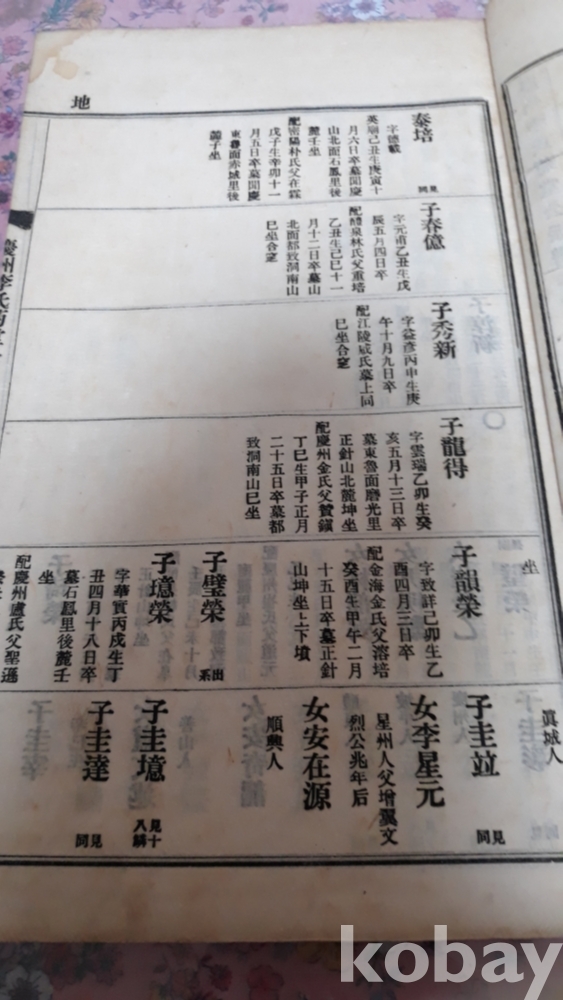 地
泰培
字德載
英廟己丑生庚寅十
月六日卒墓聞慶
山北面石鳳里後
麓壬坐
配密陽朴氏父在霖
戊子生辛卯十一
月五日卒墓聞慶
東魯面赤城里後
麓子坐
見同
子春億
字元甫乙丑生戊
辰五月四日卒
配醴泉林氏父重培
乙丑生己巳十一
月十二日卒墓山
北面都致洞南山
巳坐合窆
子秀新
字益彥丙申生庚
午十月九日卒
配江陵咸氏墓上同
巳坐合窆
子龍得
字雲瑞乙卯生癸
亥五月十三日卒
墓東魯面磨光里
正針山北麓坤坐
配慶州金氏父贊鎭
丁巳生甲子正月
二十五日卒墓都
致洞南山巳坐
坐
子韻榮
字致詳己卯生乙
酉四月三日卒
配金海金氏父溶培
癸酉生甲午二月
十五日卒墓正針
山坤坐上下墳
子璧榮
出系
子璁榮
字華實丙戌生丁
丑四月十八日卒
墓石鳳里後麓壬
坐
配慶州盧氏父聖遜
眞城人
子圭竝
見同
女李星元
星州人父增翼文
烈公兆年后
女安在源
順興人
子圭璁
見十八
子圭達
見同
慶州李氏
kobay